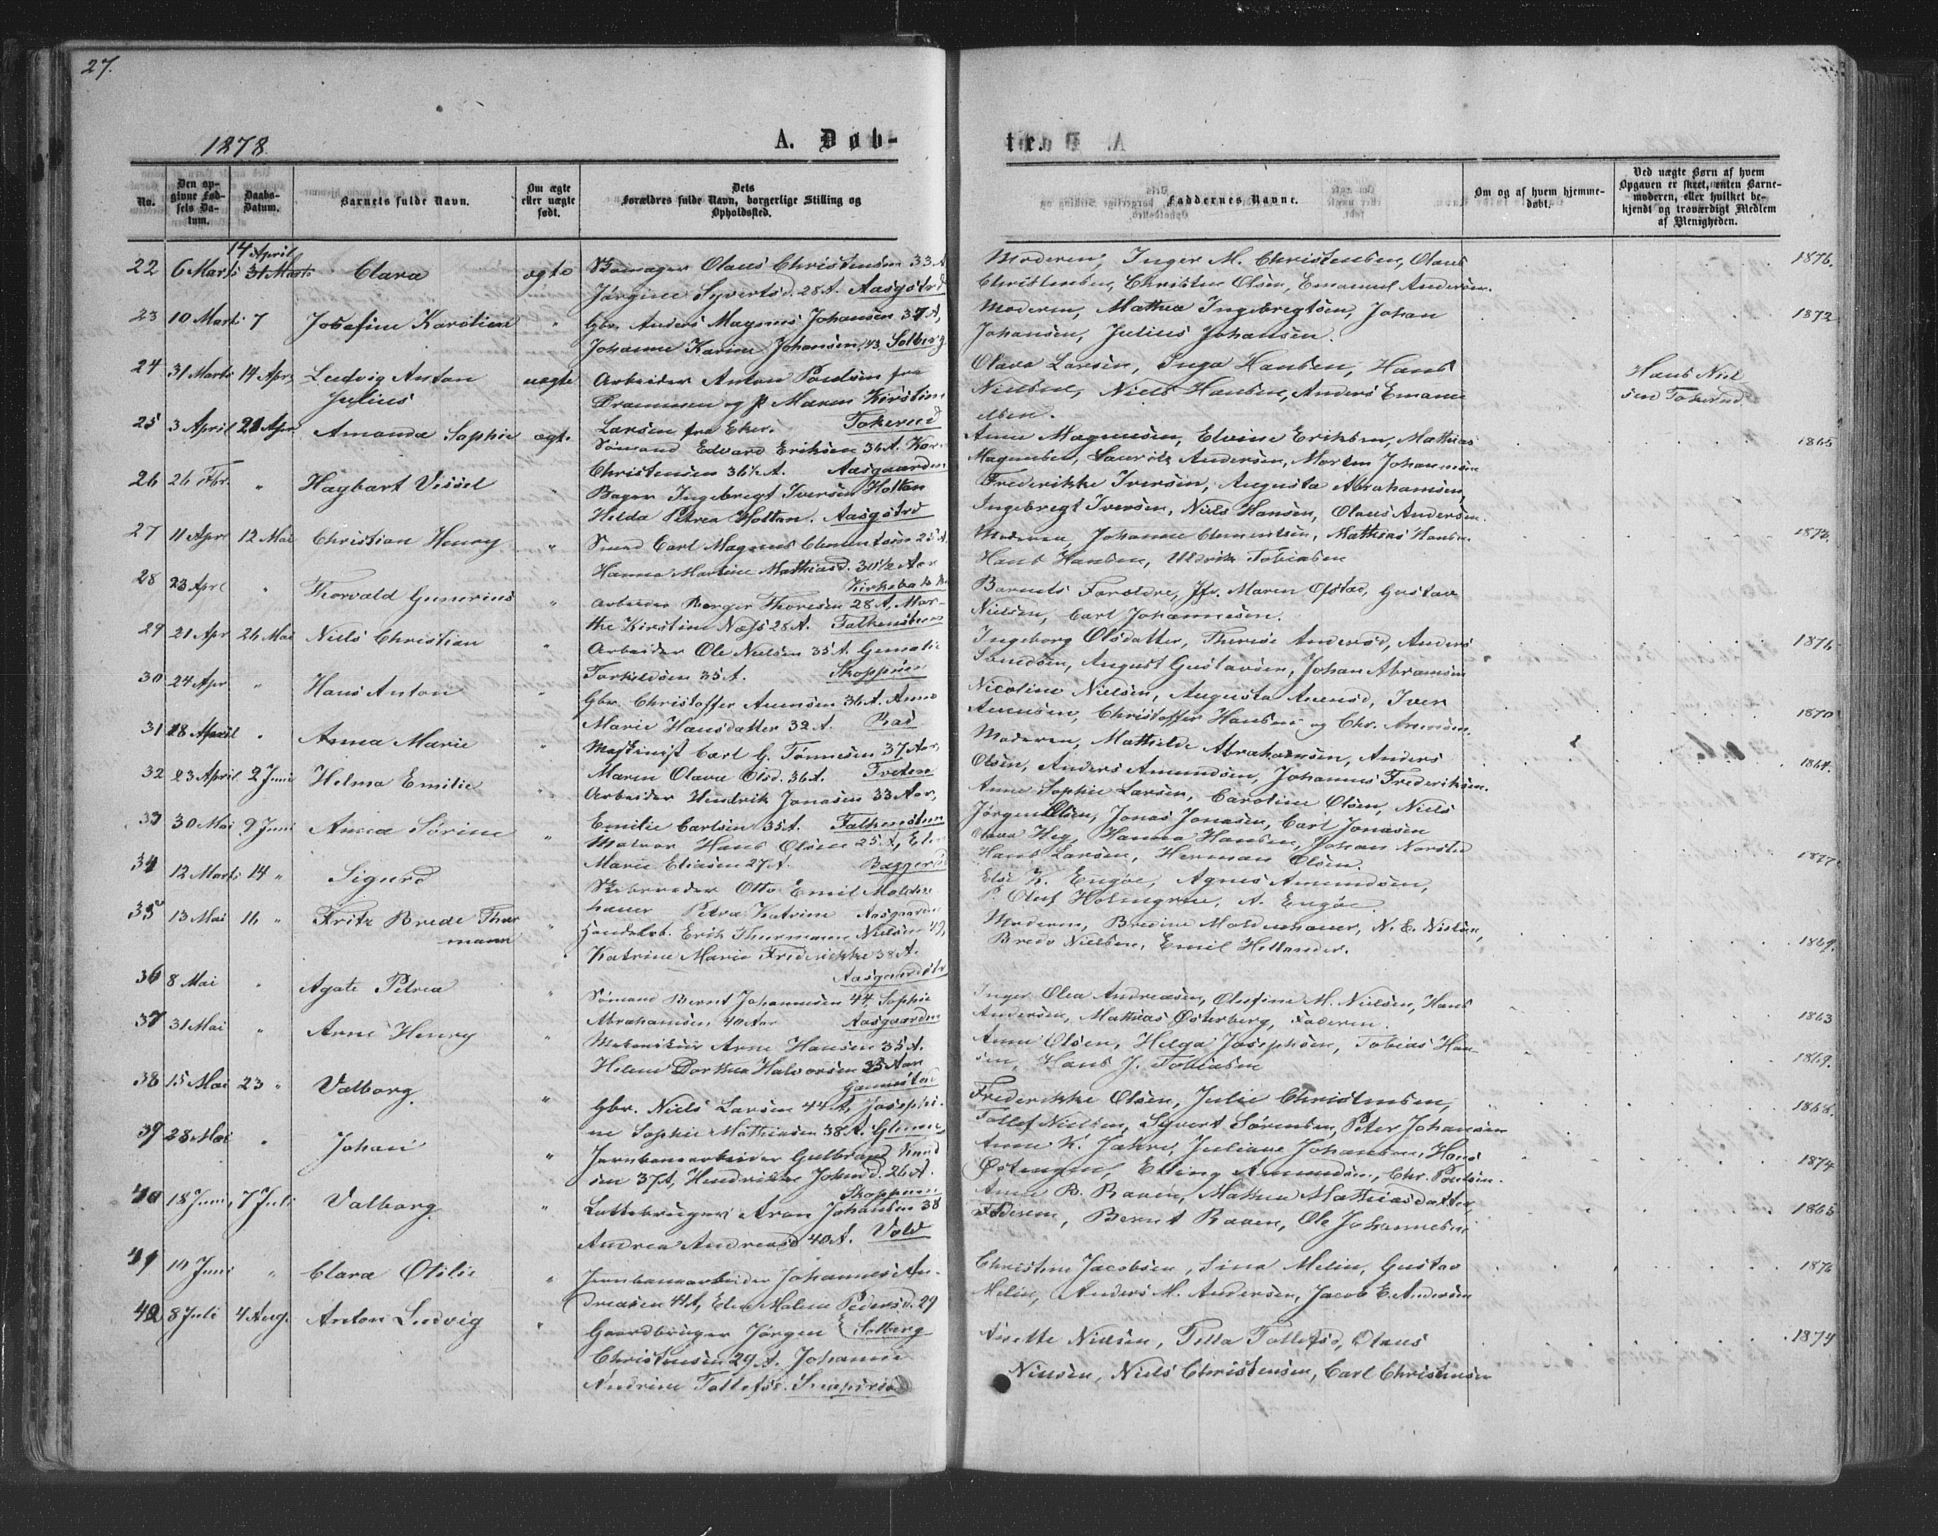 27.
1878
A. Døb-
No.
Den op-
givne Fød-
sels Da-
tum.
Daabs-
Datum.
Barnets fulde Navn.
Om ægte
eller uægte
født.
Dets
Forældres fulde Navn, borgerlige Stilling og
Opholdssted.
22 6 Marts 14 April 31 Marts Clara ægte Olaus Christensen 33 A
Jørgine Syvertsd. 28 A. Aasgstrd
23 10 Marts 7 Josefine Karoline " Gbr. Anders Magnus Johansen 37 A,
Johanne Karine Johansen, 43, Solberg
24 31 Marts 14 Apr. Ludvig Anton Julius uægte Arbeider Anton Poulsen fra
Drammen og p. Maren Kirstine
Larsen fra Eker. Tokerud
25 3 April 21 Apr. Amanda Sophie ægte Sømand Edvard Eriksen 36 A. Kar.
Christensen 36½ A. Aasgaarden
26 26 Fbr. " Hagbart Vissel Bager Ingebregt Iversen Holtan
Hilda Petrea Holtan. Aasgstrd
27 11 Apr. 12 Mai Christian Henry " Smed Carl Magnus Clementsen 25 A
Hanna Martine Mathiasd. 30½ Aar
Kirkebakken
28 23 Apr. " Thorvald Gunerius " Arbeider Berger Thoresen 28 A. Mar-
the Kirstine Næss 28 A. Falkensteen
29 21 Apr 26 Mai Niels Christian " Arbeider Ole Nielsen 35 A.
Torkildsen 35 A. Skoppum
30 24 Apr. " Hans Anton " Gbr. Christoffer Amundsen 36 A. Anne
Marie Hansdatter 32 A. Ras
31 18 April " Anna Marie " Maskinist Carl G. Tønnesen 37 Aar,
Maren Olava Olsd. 36 A. Freten
32 23 April 2 Juni Helma Emilie " Arbeider Hendrik Jonasen 33 Aar,
Emilie Carlsen 35 A. Falkensten
33 30 Mai 9 Juni Anna Sørine " Matros Hans Olsen 25 A,
Marie Eliasen 27 A. Baggerød
34 12 Marts 14 " Sigurd Skibsreder Otto Emil Molden-
hauer Petra Katrine Aasgaarden
35 13 Mai 16 " Fritz Brede Thur-
mann " Handelsb. Erik Thurmann Nielsen 49,
Katrine Marie Frederikke 38 A.
Aasgaardstr
36 8 Mai " Agate Petrea " Sømand Bernt Johannesen 44, Sophie
Abrahamsen 40 Aar Aasgaarden
37 31 Mai " Arne Henry " Arne Hansen 35 A.
Helene Dorthea Halvorsen 35 Aar
Gannestad
38 15 Mai 23 " Valborg " Gbr. Niels Larsen 44 A, Josephi-
ne Sophie Mathiasen 38 A. Glenne
39 28 Mai " Johan " Jernbanearbeider Gulbrand Knud
sen 37 A, Hendrikke Johnsd. 26 A.
Skoppum
40 18 Juni, 7 Juli Valborg " Aron Johansen 38
Andrea Andreasd 40 A. Vold
41 10 Juni " Clara Otilie " Jernbanearbeider Johannes An-
dreasen 41 A, Elen Malene Pedersd. 29
Solberg
42 8 Juli 4 Aug. Anton Ludvig " Gaardbruger Jørgen
Christensen 29 A. Johanne
Andrine Tollefsd.
te.
Faddernes Navne.
Om og af hvem hjemme-
døbt.
Ved uægte Børn af hvem
Opgaven er skeet, enten Barne-
moderen, eller hvilket be-
kjendt og troværdigt Medlem
af Menigheden.
Moderen, Inger M. Christensen, Olaus 1876.
Christensen, Christen Olsen, Emanuel Andersen.
Moderen, Mathea Ingebregtsen, Johan 1872
Johansen, Julius Johansen.
Olava Larsen, Inga Hansen, Hans Hans Niel
Nielsen, Niels Hansen, Anders Emanu sen Tokerud
elsen.
Anne Magnusen, Elvine Eriksen, Mathias 1865
Magnusen, Laurits Andersen, Morten Johannesen
Frederikke Iversen, Augusta Abrahamsen,
Ingebregt Iversen, Niels Hansen, Olaus Andersen.
Moderen, Johanne Clementsen, Mathias Hansen 1873.
Hans Hansen, Uldrik Tobiasen
Barnets Forældre, Jfr. Maren Ofstad, Gustav
Nielsen, Carl Johannesen.
Ingeborg Olsdatter, Therese Andersd, Anders 1876
Svendsen, August Gustavsen, Johan Abramsen
Nicoline Nielsen, Augusta Amundsd, Iver
Amundsen, Christoffer Hansen og Chr. Amundsen. 1870
Moderen, Mathilde Abrahamsen, Anders
Olsen, Anders Amundsen, Johannes Frederiksen. 1864.
Anne Sophie Larsen, Caroline Olsen, Niels
Jørgen Olsen, Jonas Jonasen, Carl Jonasen
Olava Heg, Hanna Hansen, Johan Norsted
Hans Larsen, Herman Olsen. 1877.
Else K. Engøe, Agnes Amundsen,
P. Oluf Holmgren, A. Engøe.
Moderen, Bredine Moldenhauer, N. E. Nielsen,
Brede Nielsen, Emil Hellander. 1869.
Inger Olea Andreasen, Olufine M. Nielsen, Hans
Andersen, Mathias Østerberg, Faderen. 1863
Anne Olsen, Helga Josephsen, Tobias Han-
sen, Hans J. Tobiasen 1869.
Frederikke Olsen, Julie Christensen,
Tollef Nielsen, Syvert Sørensen, Peter Johansen 1868.
Anne K. Jahre, Juliane Johansen, Hans
Østengen, Elling Amundsen, Chr. Poulsen. 1874
Anne B. Raaen, Mathea Mathiasdatter,
Faderen, Bernt Raaen, Ole Johannesen 1865
Christine Jacobsen, Sina Melin, Gustav 1876
Melin, Anders M. Andersen, Jacob E. Andersen
Anette Nielsen, Tilla Tollefsd, Olaus 1874
Nielsen, Niels Christensen, Carl Christensen